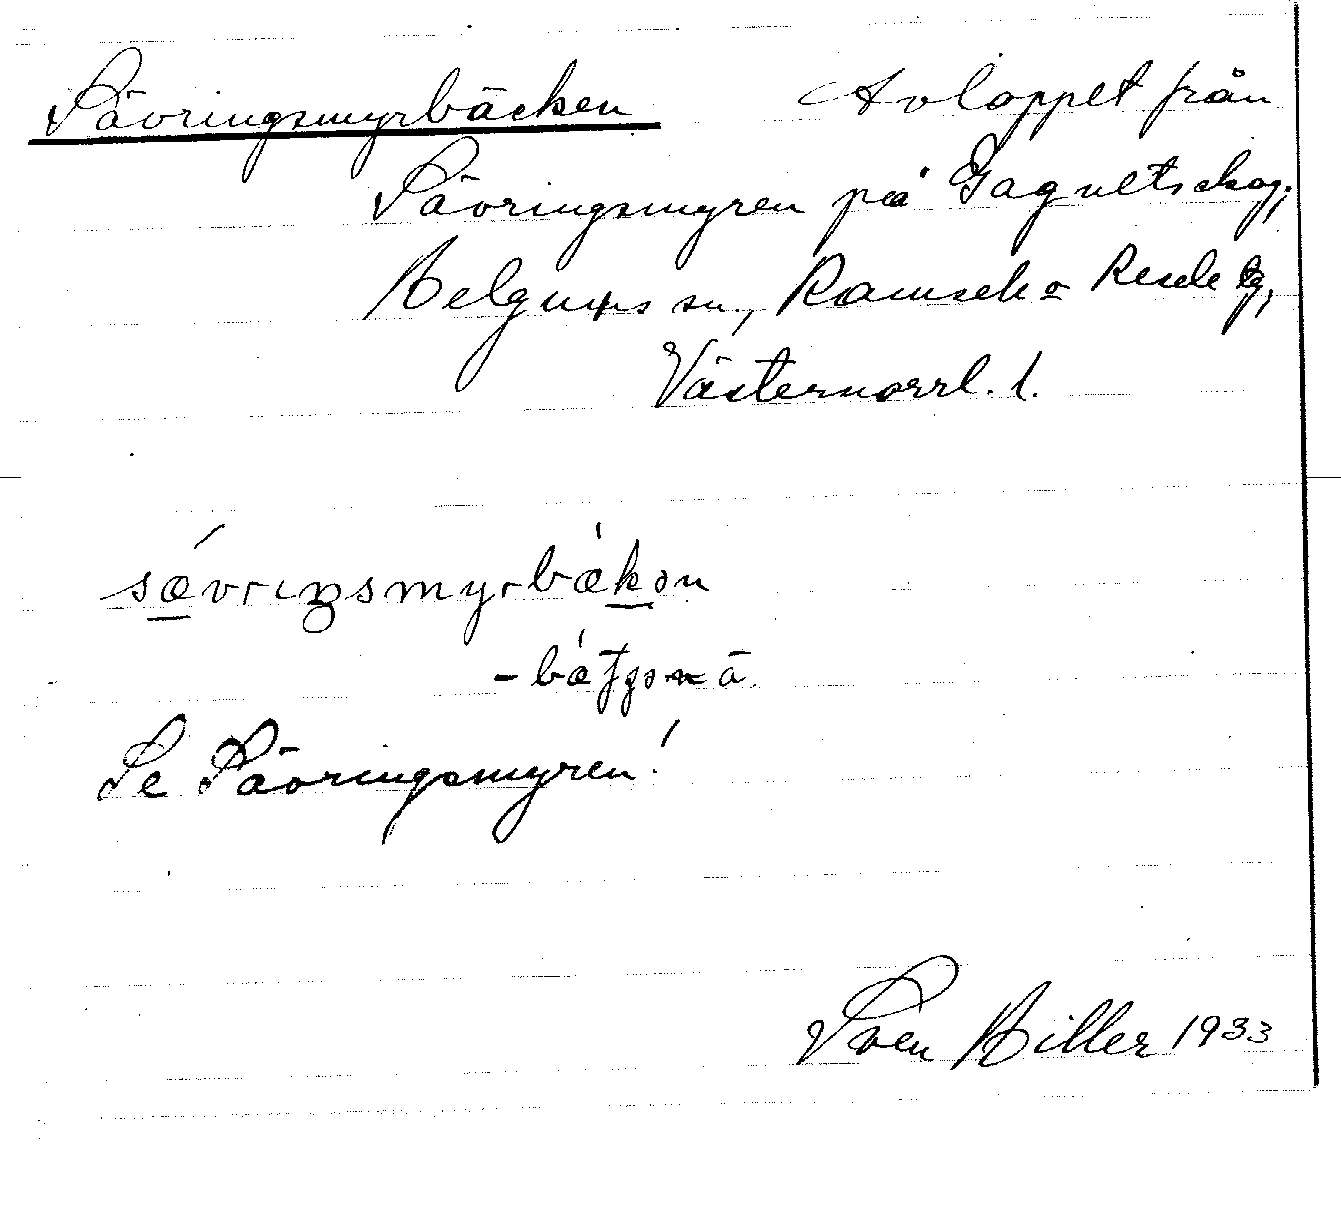 Sävringsmyrbäcken Avloppet från
Sävringsmyren på Gagnetskog;
Helgums sn, Ramsele o Resele tg,
Västernorrl. l.
sævriŋsmyrbækən
- bætjənā
Se Sävringsmyren!
Sven Hiller 1933